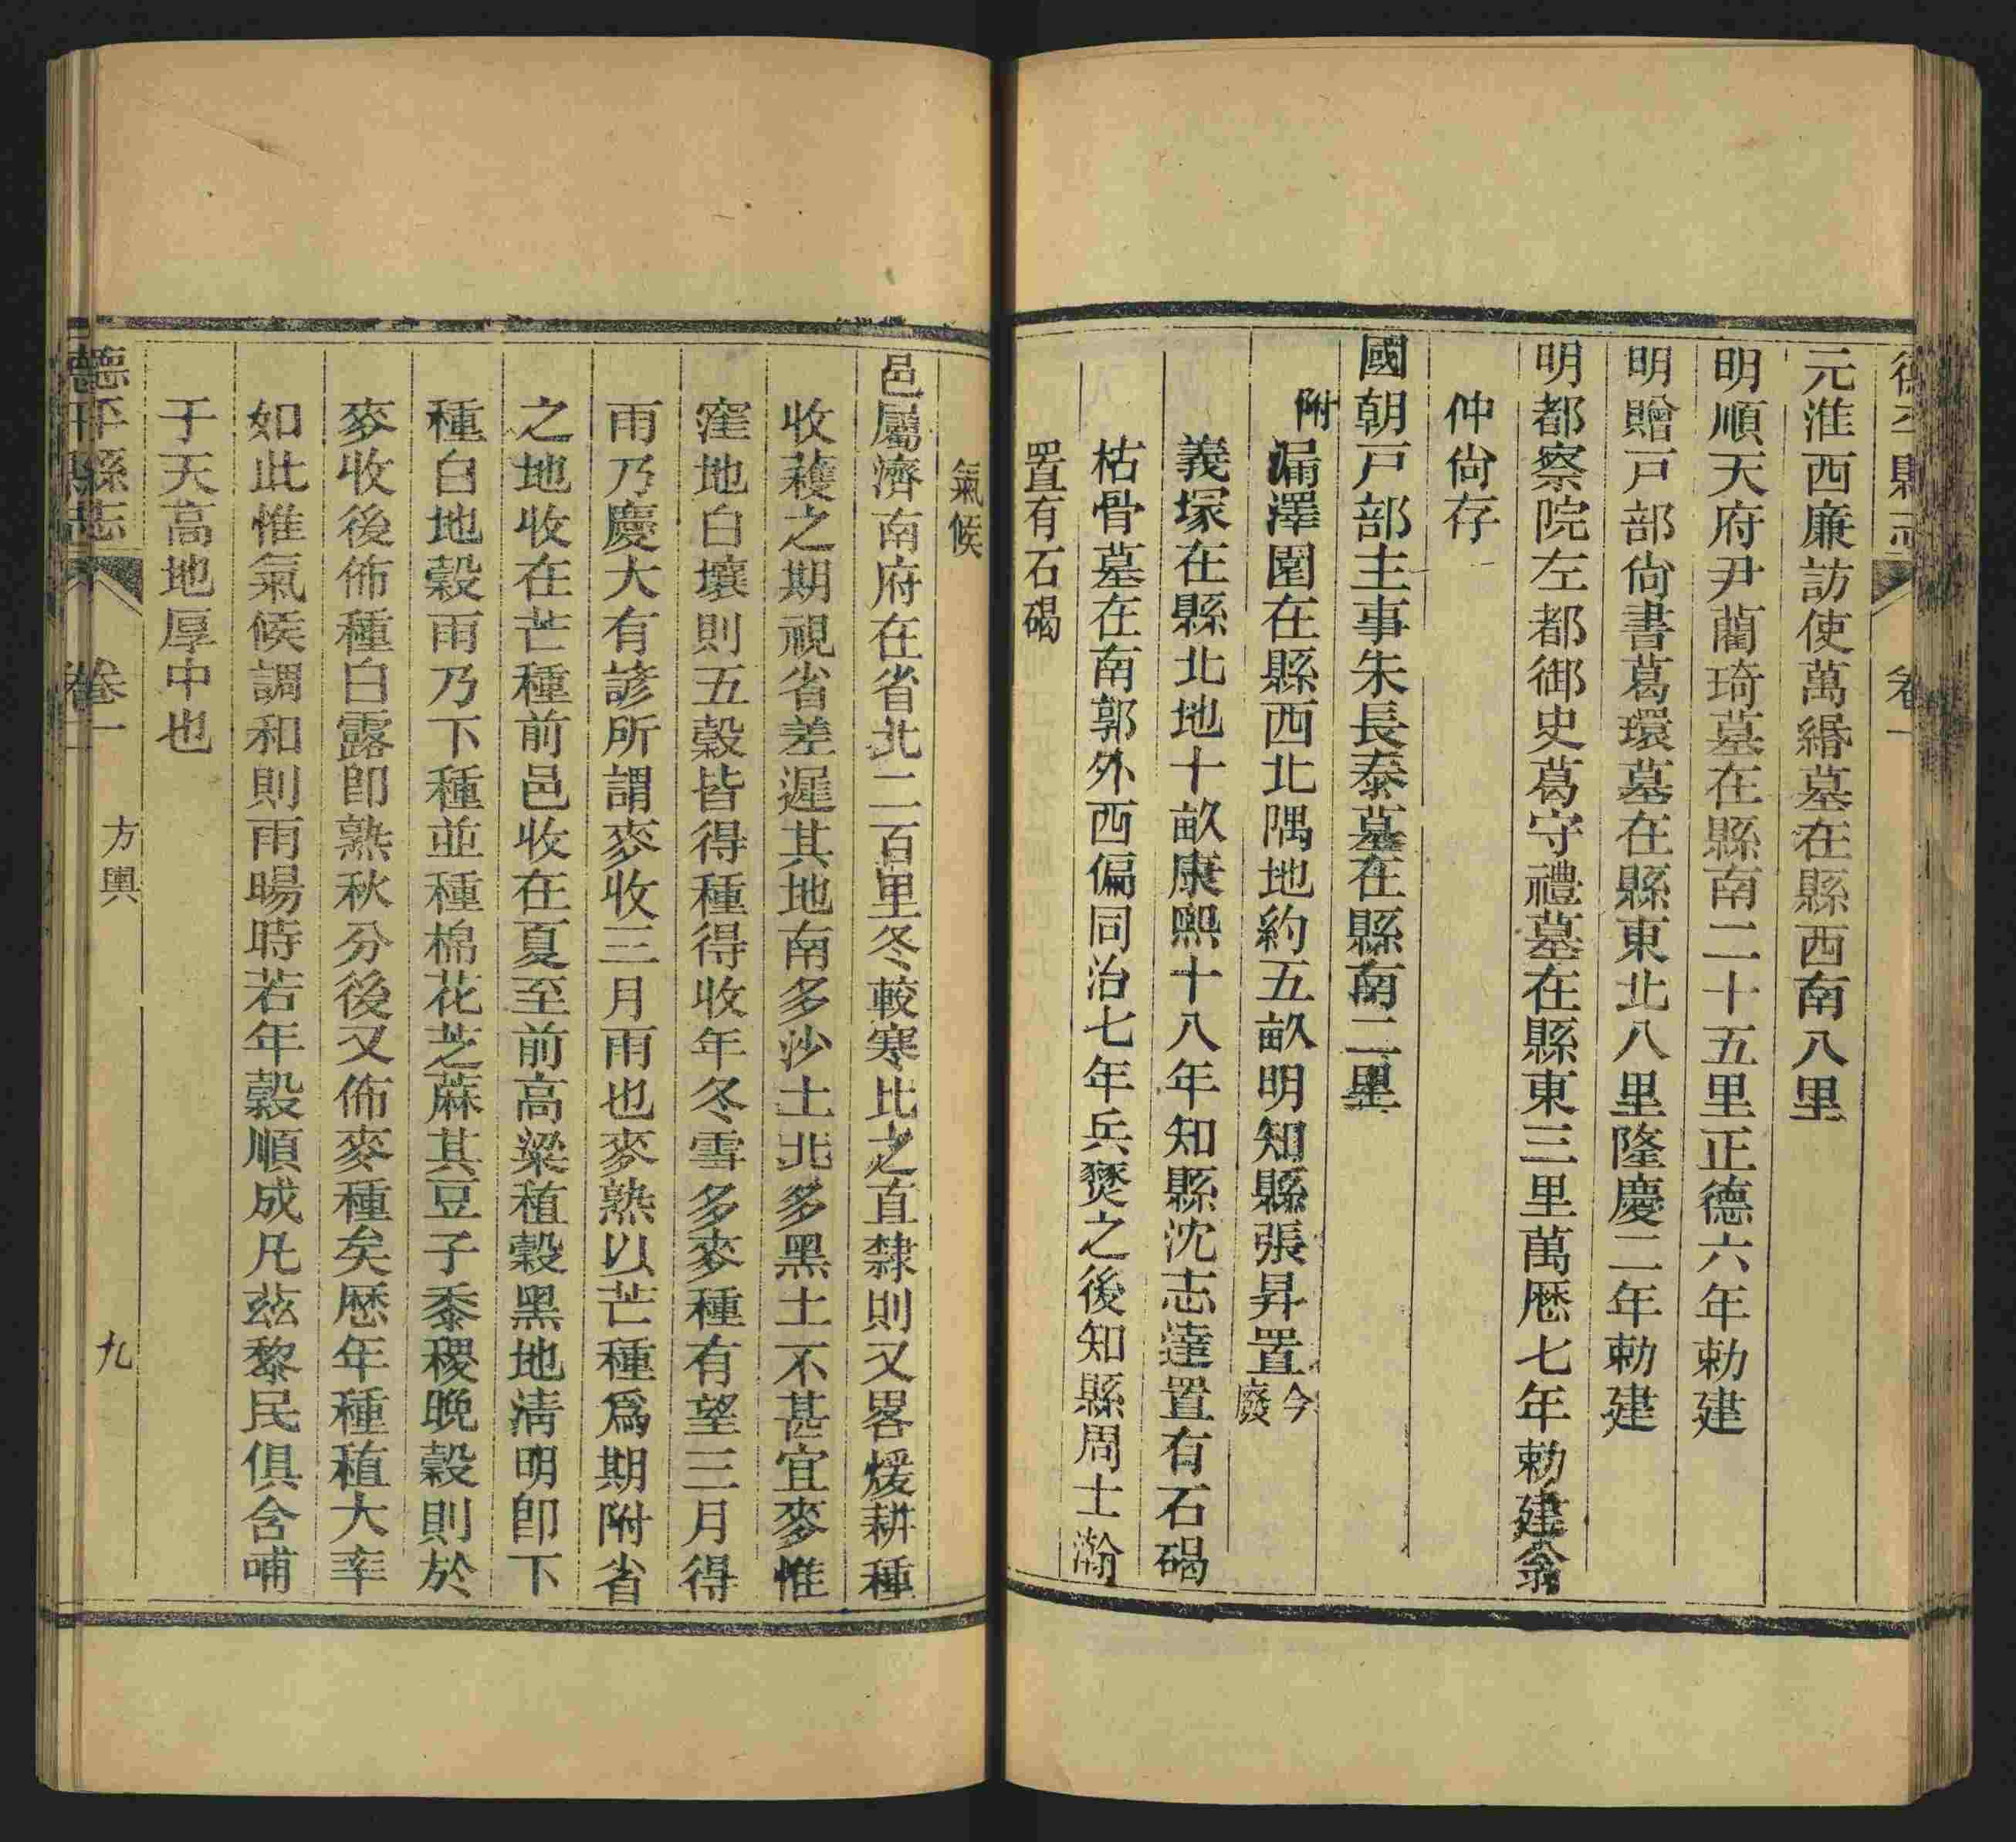 元淮西廉訪使萬緡墓在縣西南八里
明順天府尹藺琦墓在縣南二十五里正德六年勅建
明贈戸部尙書葛環墓在縣東北八里隆慶二年勅建
明都察院左都御史葛守禮墓在縣東三里萬歷七年勅建翁
仲尙存
國朝戸部主事朱長泰墓在縣南二里
附漏澤園在縣西北隅地約五畝明知縣張昇置今廢
義塚在縣北地十畝康熙十八年知縣沈志達置有石碣
枯骨墓在南郭外西偏同治七年兵燹之後知縣周士瀚
置有石碣
氣候
邑屬濟南府在省北二百里冬較寒比之直隸則又畧煖耕種
收穫之期視省差遲其地南多沙土北多黑土不甚宜麥惟
窪地白壤則五穀皆得種得收年冬雪多麥種有望三月得
雨乃慶大有諺所謂麥收三月雨也麥熟以芒種爲期附省
之地收在芒種前邑收在夏至前高粱稙穀黑地淸明卽下
種白地穀雨乃下種並種棉花芝蔴其豆子黍稷晚穀則於
麥收後佈種白露卽熟秋分後又佈麥種矣歷年種稙大率
如此惟氣候調和則雨暘時若年穀順成凡茲黎民俱含哺
于天高地厚中也
德平縣志 卷一 方輿 九